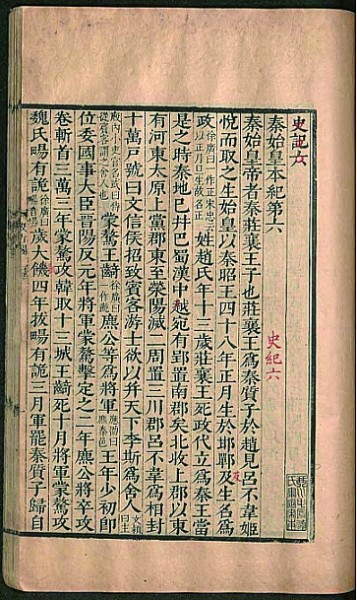 史記六
秦始皇本紀第六
史紀六
秦始皇帝者秦莊襄王子也莊襄王爲秦質子於趙見呂不韋姬
悅而取之生始皇以秦昭王四十八年正月生於邯鄲及生名爲
政徐廣曰一作正宋忠云以正月旦生故名正姓趙氏年十三歲莊襄王死政代立爲秦王當
是之時秦地已并巴蜀漢中越宛有郢置南郡矣北收上郡以東
有河東太原上黨郡東至滎陽滅二周置三川郡呂不韋爲相封
十萬戶號曰文信侯招致賓客游士欲以并天下李斯爲舍人文穎曰主
廄內小吏官名或曰侍從賓客謂之舍人也蒙驁王齮徐廣曰一作齕麃公等爲將軍應劭曰麃秦邑王年少初即
位委國事大臣晉陽反元年將軍蒙驁擊定之二年麃公將卒攻
卷斬首三萬三年蒙驁攻韓取十三城王齮死十月將軍蒙驁攻
魏氏畼有詭徐廣曰畼音場歲大饑四年拔畼有詭三月軍罷秦質子歸自